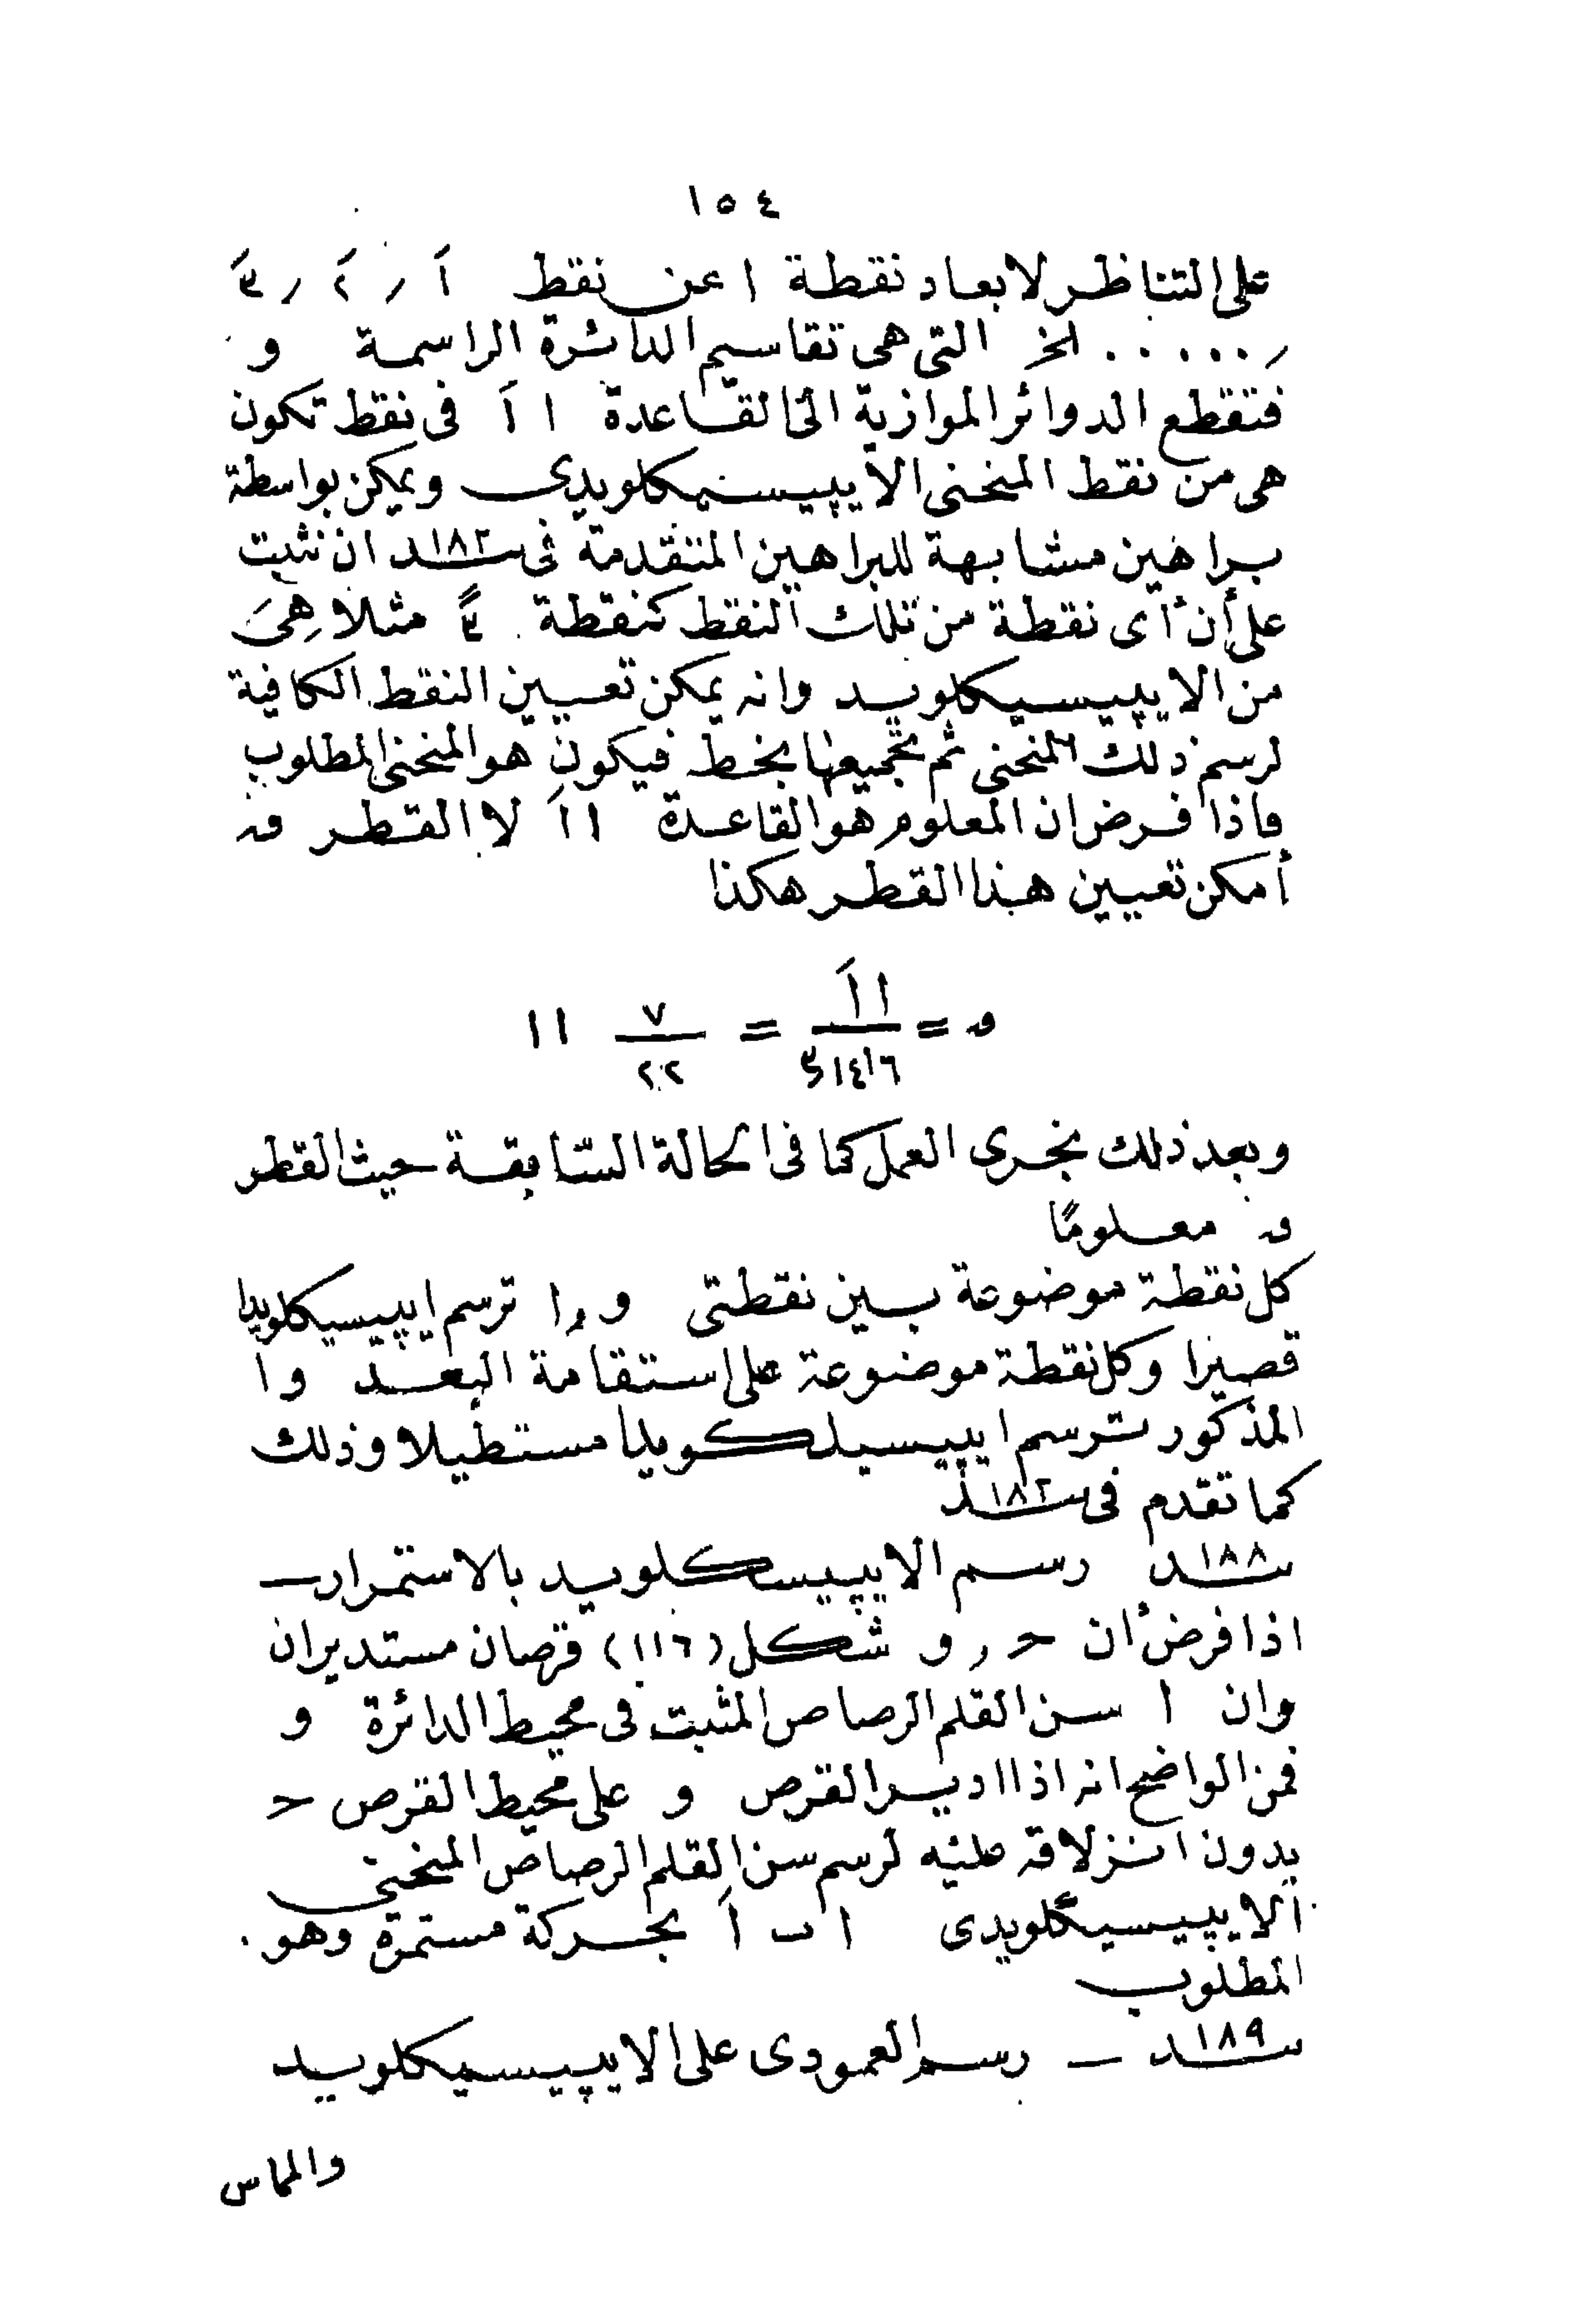 ١٥٤
على التناظر لابعاد نقطة ا عن نقط اَ ر ٢َ ر ٣َ
ر..... الخ التى هى تقاسيم الدائرة الراسمة و
فتقطع الدوائر الموازية الى القاعدة ا اَ فى نقط تكون
هى من نقط المنحنى الايپيسيكلويدى ويمكن بواسطة
براهين مشابهة للبراهين المتقدمة فى ١٨٢ ان نثبت
على أن أى نقطة من تلك النقط كنقطة مثلا هِىَ
من الايپيسيكلويد وانه يمكن تعيين النقط الكافية
لرسم ذلك المنحنى ثم تجميعها بخط فيكون هو المنحنى المطلوب
فاذا فرض ان المعلوم هو القاعدة ا اَ لا القطر ق
أمكن تعيين هذا القطر هكذا
ق = ا اَ / ٣٫١٤١٦ = ٧ / ٢٢ ا ا
وبعد ذلك نجرى العمل كما فى الحالة السّابقة حيث القطر
ق معلومًا
كل نقطة موضوعة بين نقطتى و ر ا ترسم ايپيسيكلويدا
قصيرا وكل نقطة موضوعة على استقامة البعد و ا
المذكور ترسم ايپيسيلكويدا مستطيلا وذلك
كما تقدم فى ١٨٢
١٨٨ رسم الايپيسكلويد بالاستمرار —
اذا فرض أن حـ ر و شكل (١١٦) قرصان مستديران
وان ا سن القلم الرصاص المثبت فى محيط الدائرة و
فمن الواضح انه اذا ادير القرص و على محيط القرص حـ
بدون انزلاقه عليه لرسم سن القلم الرصاص المنحنى
الايپيسيكلويدى ا ب اَ بحركة مستمرة وهو
المطلوب
١٨٩ — رسم العمودى على الايپيسيكلويد
والماس